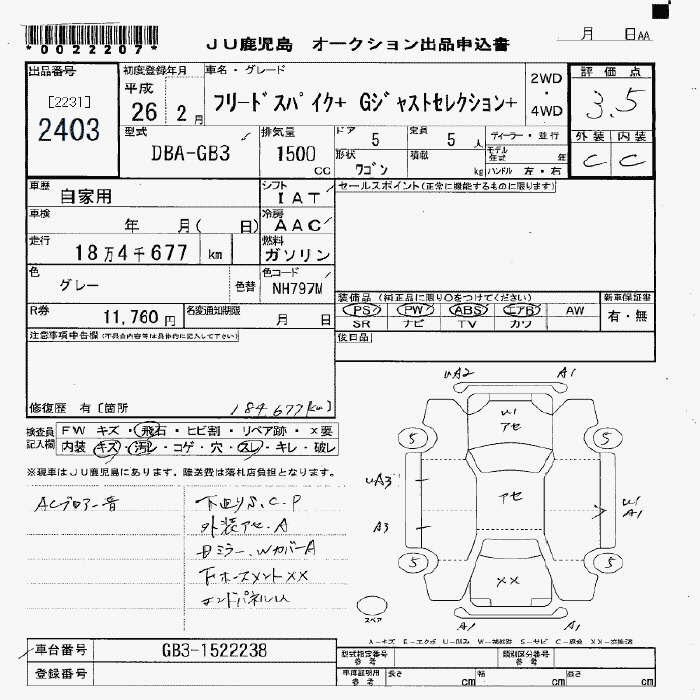 *0022207*
JU鹿児島 オークション出品申込書
月 日AA
出品番号
[2231]
2403
初度登録年月
平成
26 2月
車名・グレード
フリードスパイク+ Gジャストセレクション+
2WD
・
4WD
評価点
3.5
外装 内装
C C
型式
DBA-GB3
排気量
1500
CC
ドア 5
定員 5 人
ディーラー・並行
モデル年式 年
形状 ワゴン
積載 kg
ハンドル 左・右
車歴 自家用
シフト IAT
セールスポイント(正常に機能するものに限ります)
車検 年 月( 日)
冷房 AAC
走行 18万4千677 km
燃料 ガソリン
色 グレー
色替
色コード NH797M
R券 11,760円
名変通知期限 月 日
装備品(純正品に限り○をつけてください)
PS PW ABS エアB AW
SR ナビ TV カワ
新車保証書
有・無
後日品
注意事項申告欄(不具合内容等は具体的に記入して下さい)
修復歴 有〔箇所 184,677km〕
検査員記入欄
FW キズ・飛石・ヒビ割・リペア跡・×要
内装 キズ・汚レ・コゲ・穴・スレ・キレ・破レ
※現車はJU鹿児島にあります。陸送費は落札店負担となります。
ACブロアー音
下回りS.C.P
外装アセ.A
Wカバー A
××
エンドパネルU
uA2 A1
U1
アセ
5 5
uA3
アセ
U1
A1
A3
5 5
××
スペア
A1 A1
A-キズ E-エクボ U-凹み W-補修跡 S-サビ C-腐食 XX-交換済
車台番号 GB3-1522238
登録番号
型式指定番号 参考
類別区分番号 参考
車庫証明用 参考
長さ cm
幅 cm
高さ cm